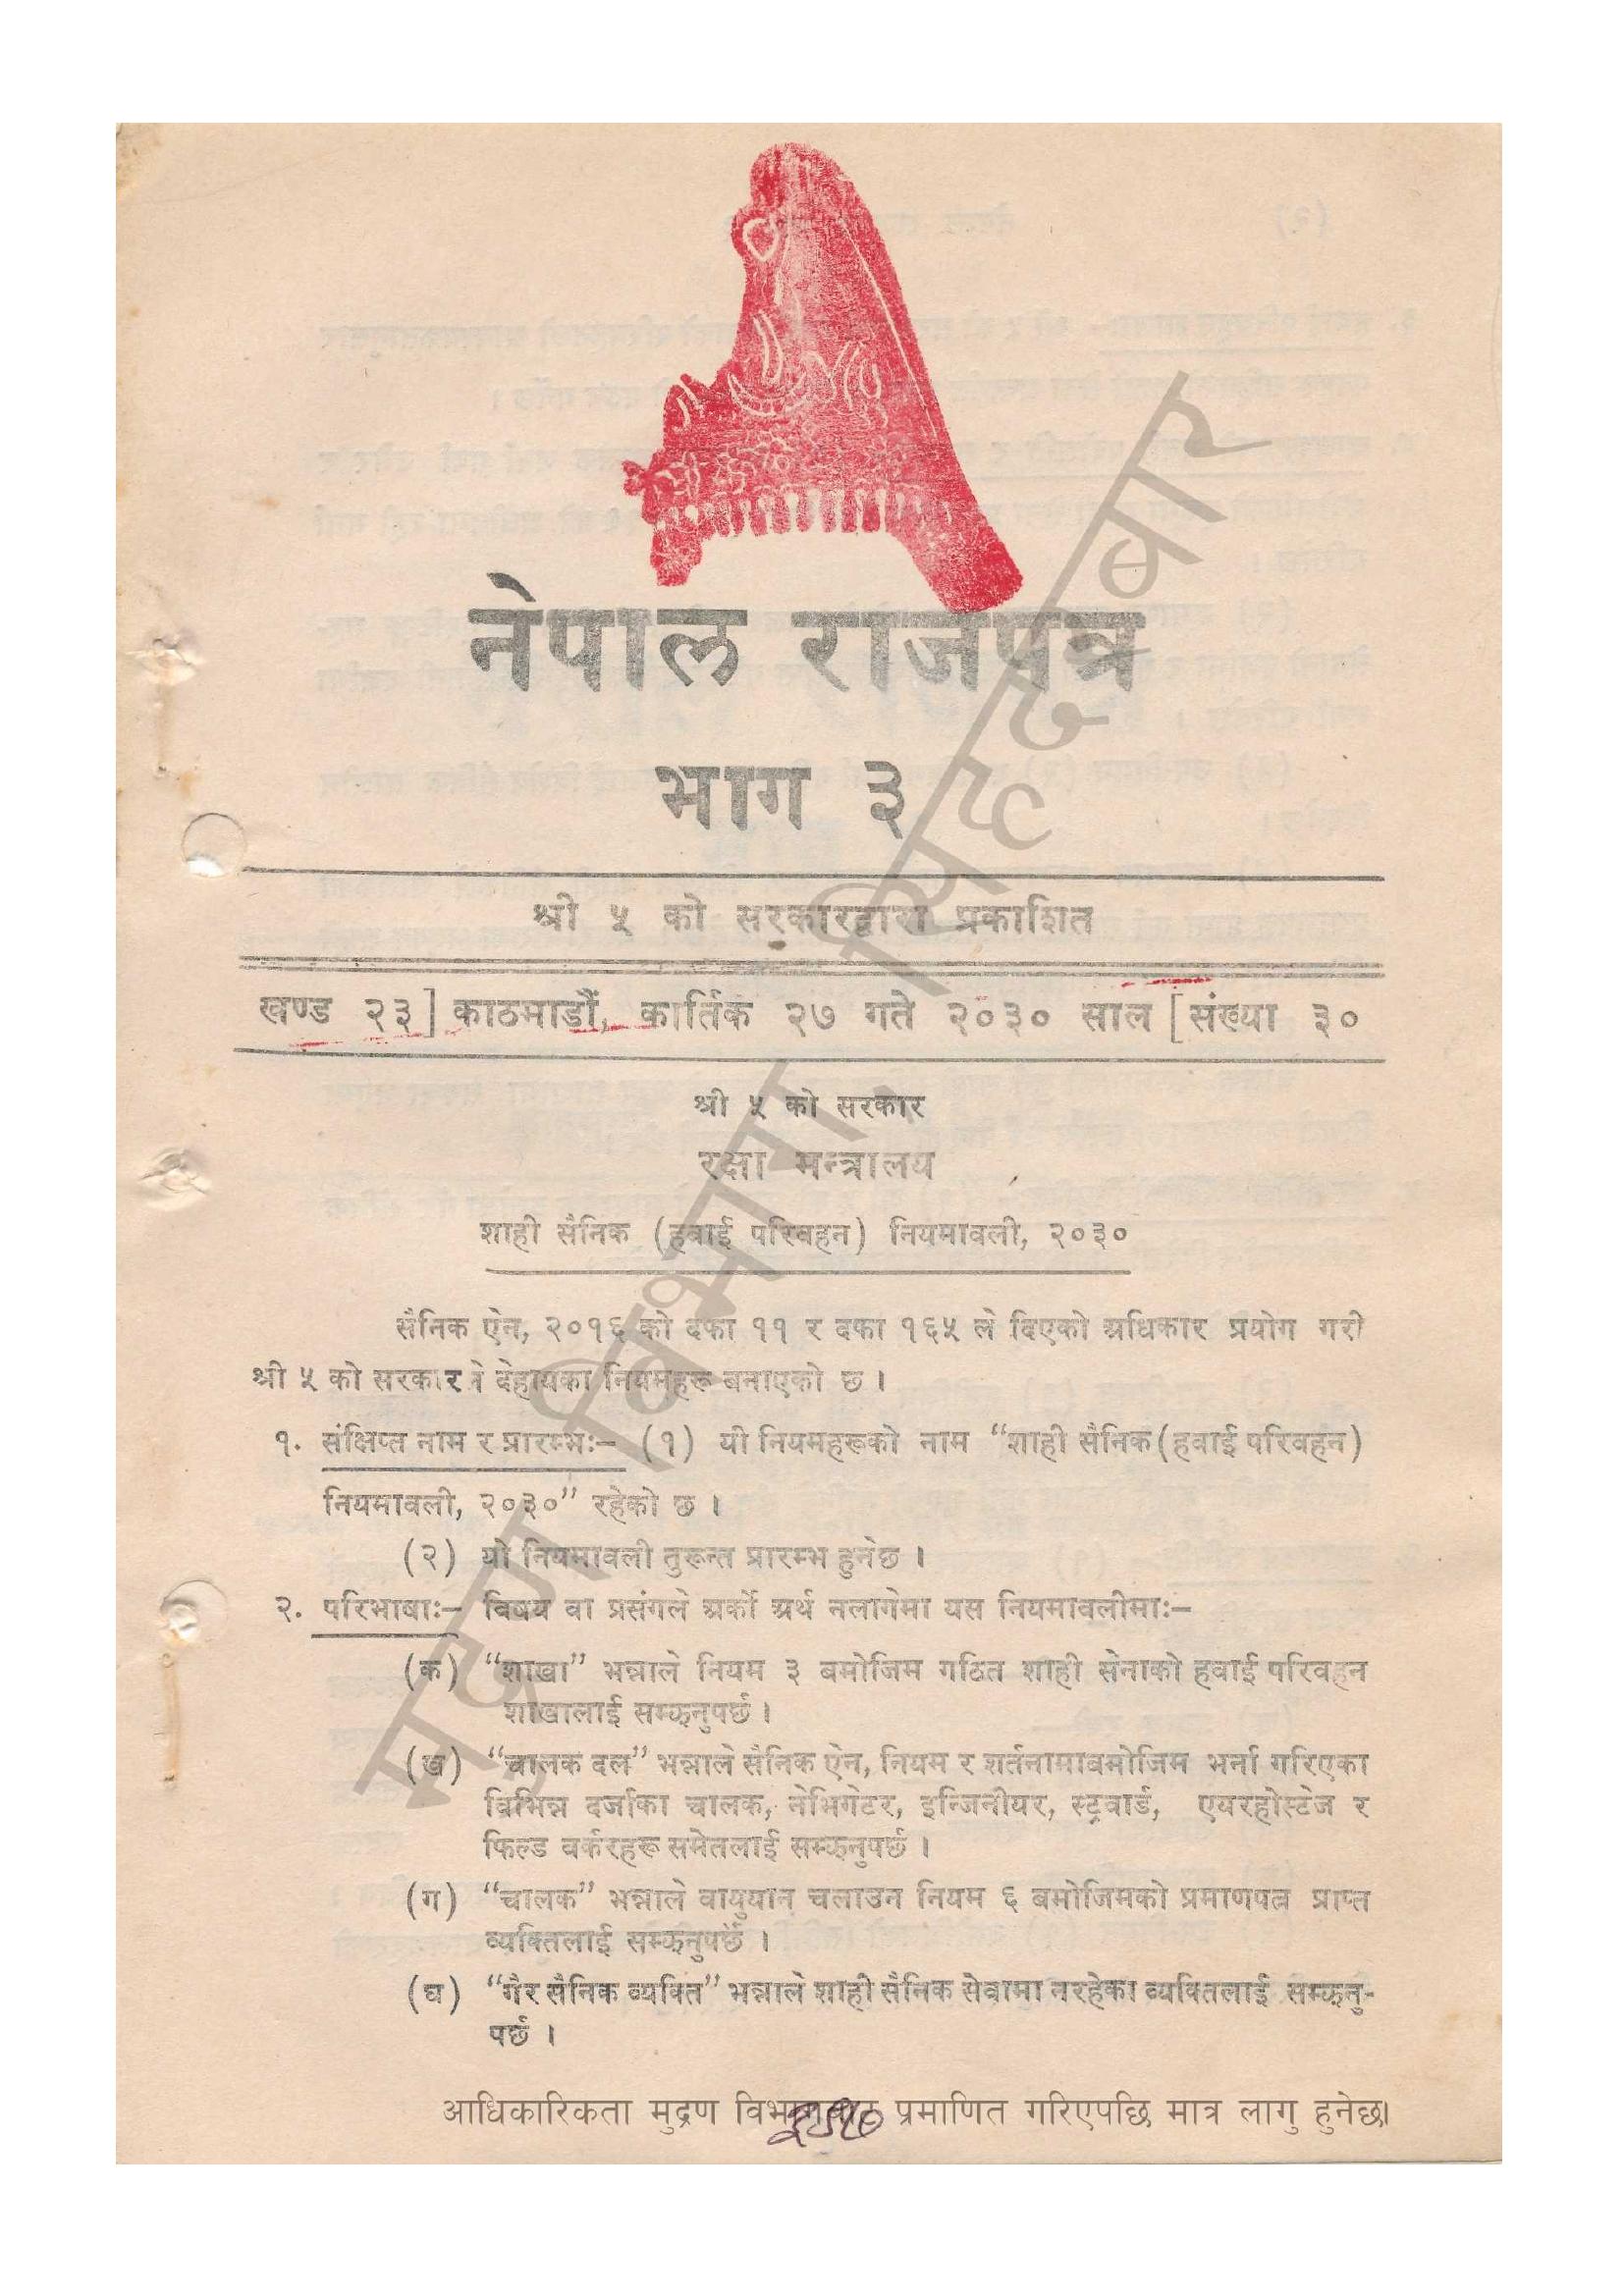 नेपाल राजपत्र
भाग ३
श्री ५ को सरकारद्वारा प्रकाशित
खण्ड २३] काठमाडौं, कार्तिक २७ गते २०३० साल [संख्या ३०
श्री ५ को सरकार
रक्षा मन्त्रालय
शाही सैनिक (हवाई परिवहन) नियमावली, २०३०
सैनिक ऐन, २०१६ को दफा ११ र दफा १६५ ले दिएको अधिकार प्रयोग गरी
श्री ५ को सरकारले देहायका नियमहरू बनाएको छ ।
१. संक्षिप्त नाम र प्रारम्भः– (१) यी नियमहरूको नाम “शाही सैनिक(हवाई परिवहन)
नियमावली, २०३०” रहेको छ ।
(२) यो नियमावली तुरून्त प्रारम्भ हुनेछ ।
२. परिभाषाः– विषय वा प्रसंगले अर्को अर्थ नलागेमा यस नियमावलीमाः–
(क) “शाखा” भन्नाले नियम ३ बमोजिम गठित शाही सेनाको हवाई परिवहन
शाखालाई सम्झनुपर्छ ।
(ख) “चालक दल” भन्नाले सैनिक ऐन, नियम र शर्तनामाबमोजिम भर्ना गरिएका
विभिन्न दर्जाका चालक, नेभिगेटर, इन्जिनीयर, स्टुवार्ड, एयरहोस्टेज र
फिल्ड वर्करहरू समेतलाई सम्झनुपर्छ ।
(ग) “चालक” भन्नाले वायुयान चलाउन नियम ६ बमोजिमको प्रमाणपत्र प्राप्त
व्यक्तिलाई सम्झनुपर्छ ।
(घ) “गैर सैनिक व्यक्ति” भन्नाले शाही सैनिक सेवामा नरहेका व्यक्तिलाई सम्झनु-
पर्छ ।
आधिकारिकता मुद्रण विभागबाट प्रमाणित गरिएपछि मात्र लागु हुनेछ।
मुद्रण विभाग, सिंहदरबार